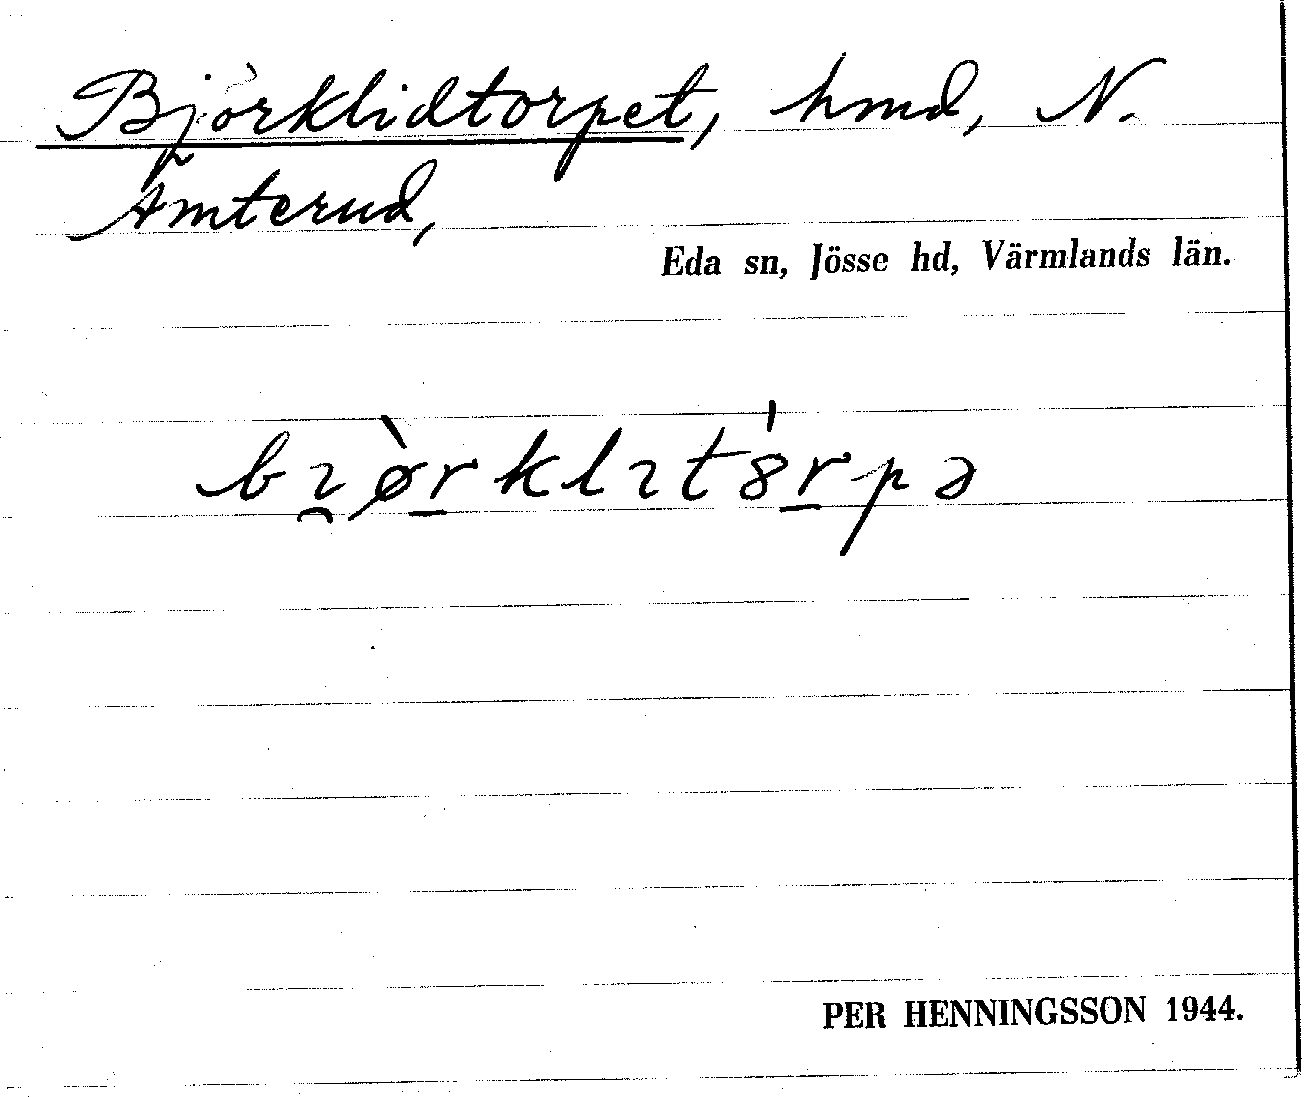 Björklidtorpet, hmd, N.
Amterud,
Eda sn, Jösse hd, Värmlands län.
bɿ̯ø̀r̠klɿt8̍r̠pə
PER HENNINGSSON 1944.